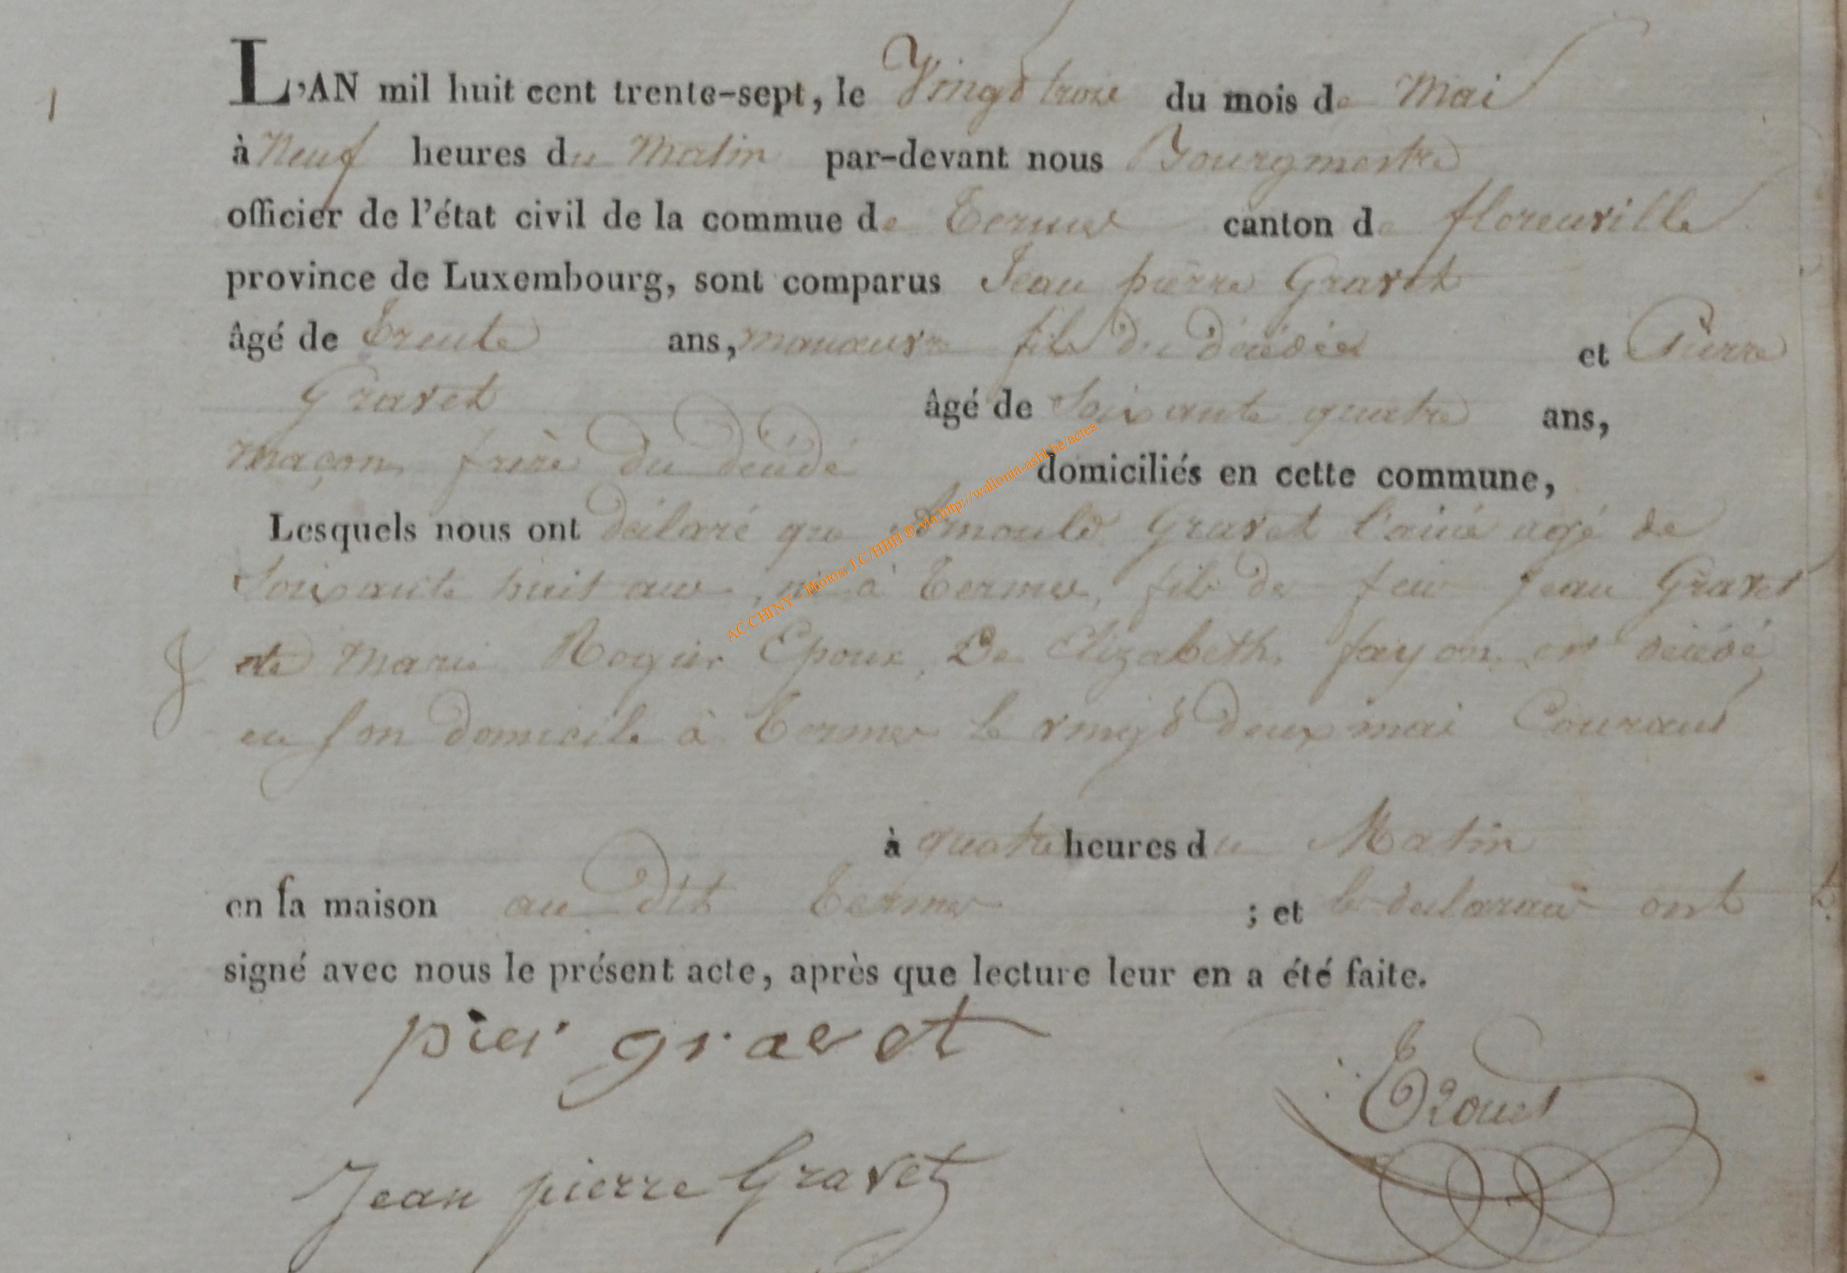 L'AN mil huit cent trente-sept, le Vingt trois du mois de Mai
à Neuf heures du Matin par-devant nous Bourgmestre
officier de l'état civil de la commue de Termes canton de florenville
province de Luxembourg, sont comparus Jean pierre Gravet
âgé de Trente ans, manœuvre fils du décédé et Pierre
Gravet âgé de Soixante quatre ans,
maçon frère du décédé domiciliés en cette commune,
Lesquels nous ont déclaré que Arnould Gravet l'ainé agé de
Soixante huit ans, né à Termes, fils de feu Jean Gravet
et de Marie Rogier Epoux De Elizabeth fayon est décédé
en son domicile à Termes le vingt deux mai Courant
à quatre heures du Matin
en sa maison au dit Termes ; et les déclarans ont
signé avec nous le présent acte, après que lecture leur en a été faite.
pier gravet
Jean pierre Gravet
AC CHINY - Photos J.C/HBH © via http://wallonia-asbl.be/actes